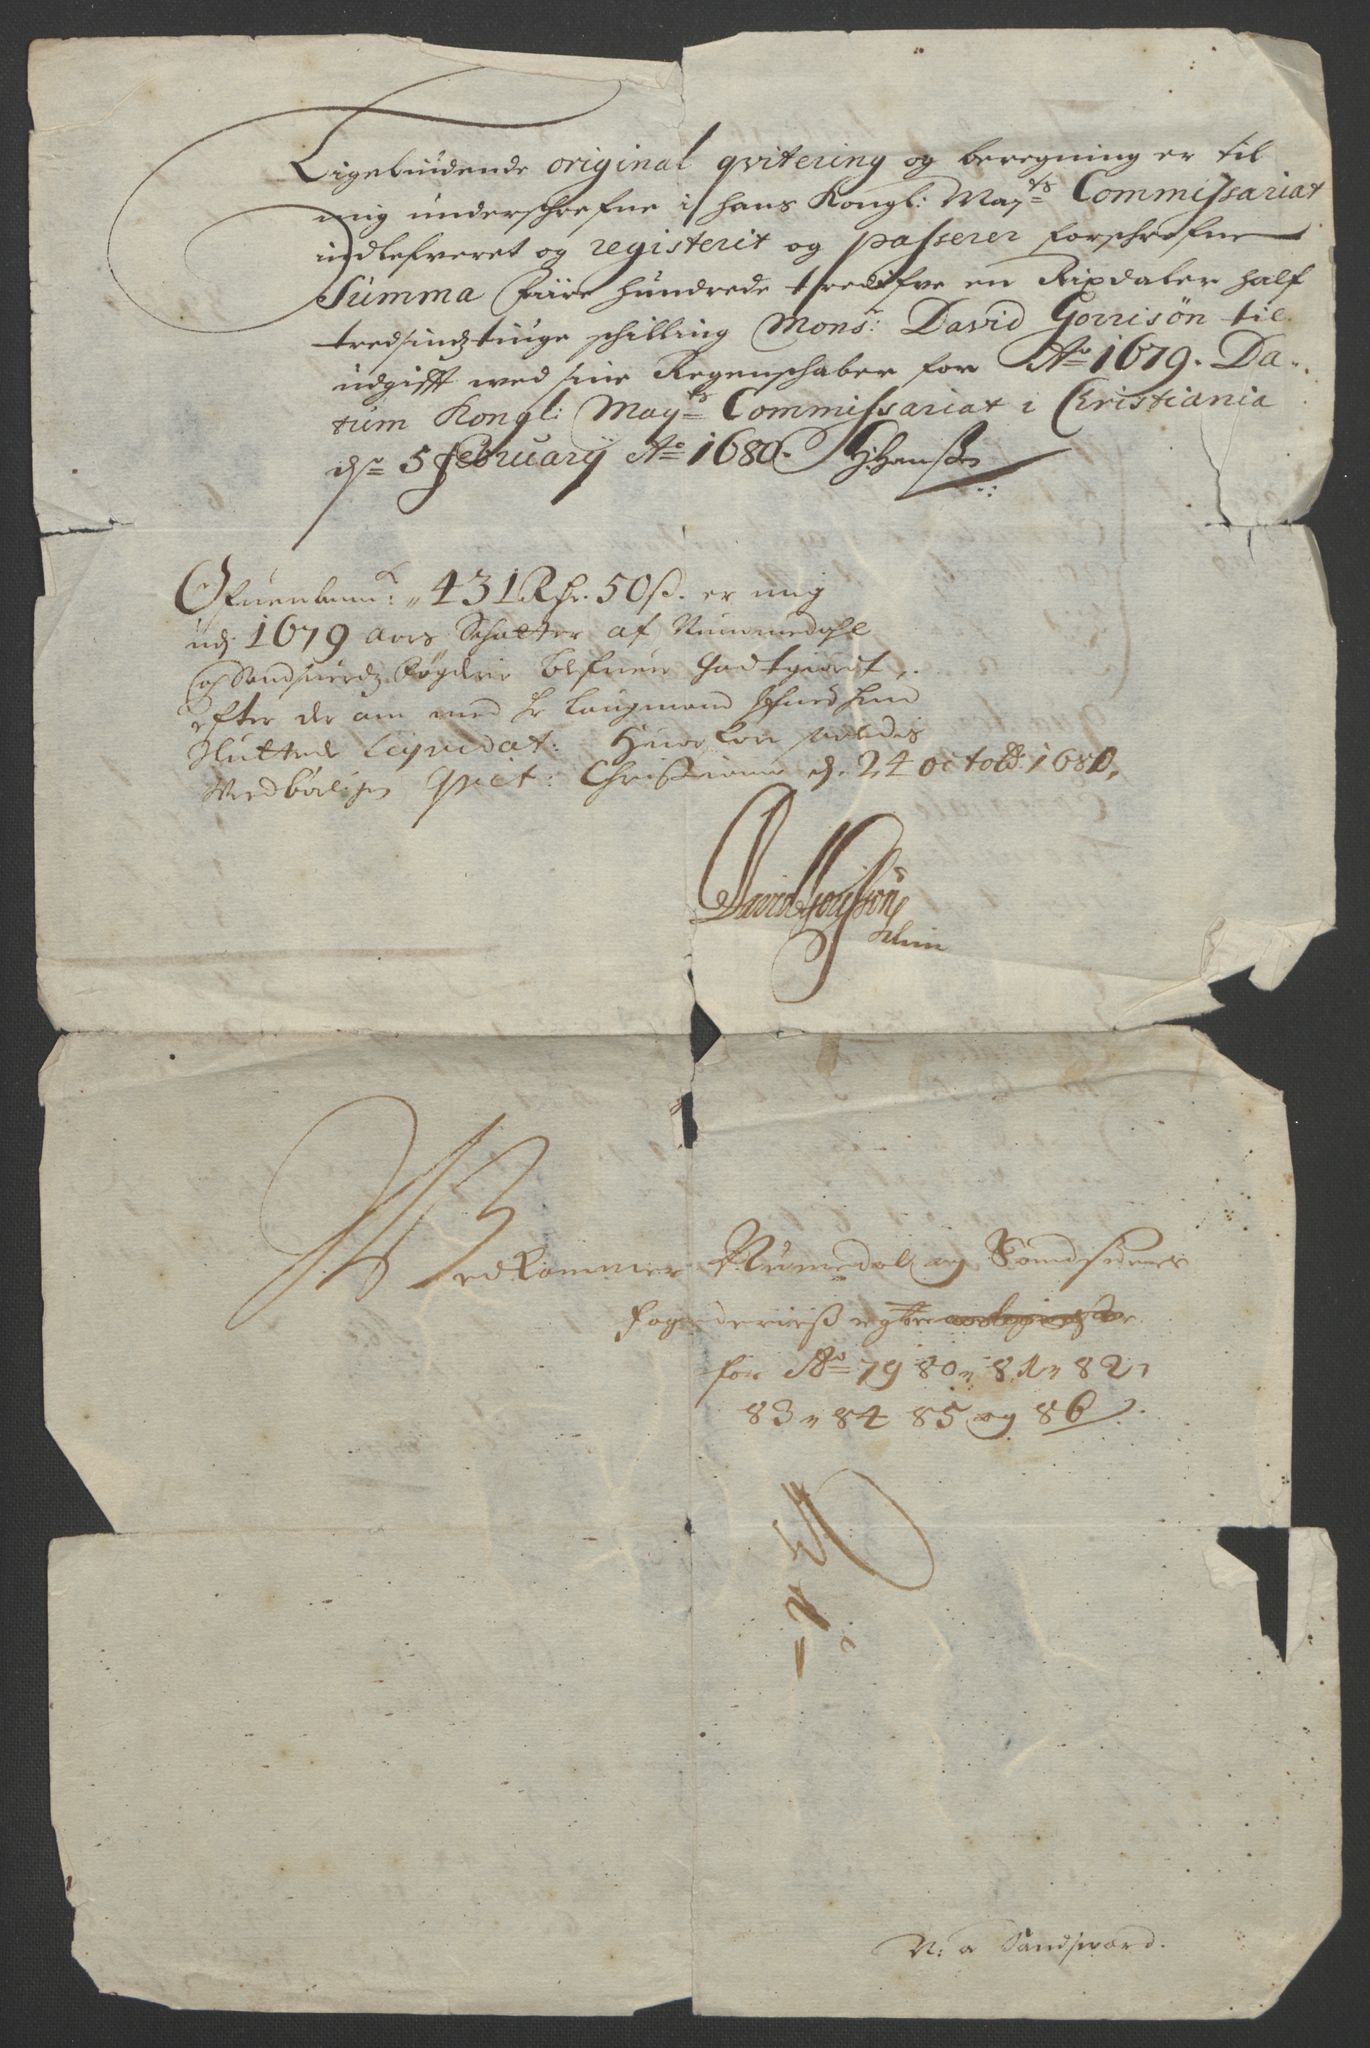 Ligeluudende original qvitering og beregning er til
mig underschrefne i hans Kongl: May:ts Commissariat
indlefveret og registerit og passerer forschrefne
Summa fiire hundrede tredifve en Rixdaler half
tredsindztiuge schilling Mons:r David Gorrisön til
udgifft wed sine Regenschaber for Ao 1679. Da-
tum Kongl: May:ts Commissariat i Christiania
dn 5 February Ao 1680. HHansen
Ofuenbem:te 431 Rdr. 50 ß. er mig
udj 1679 aars Schatter af Nummedahl
og Sandsuerdz fögderie godtgiordt,
efter der om med Hr Laugmand
Sluttede Liqvidat: Huorfor
Vedbörligen Qvit: Christiania d. 24 octobr 1680.
David Gorrissön
Vedkommer Nummedal og Sandsuers
fogderies
for Ao 79 80 81 82
83 84 85 og 86
N: a Sandsverd.